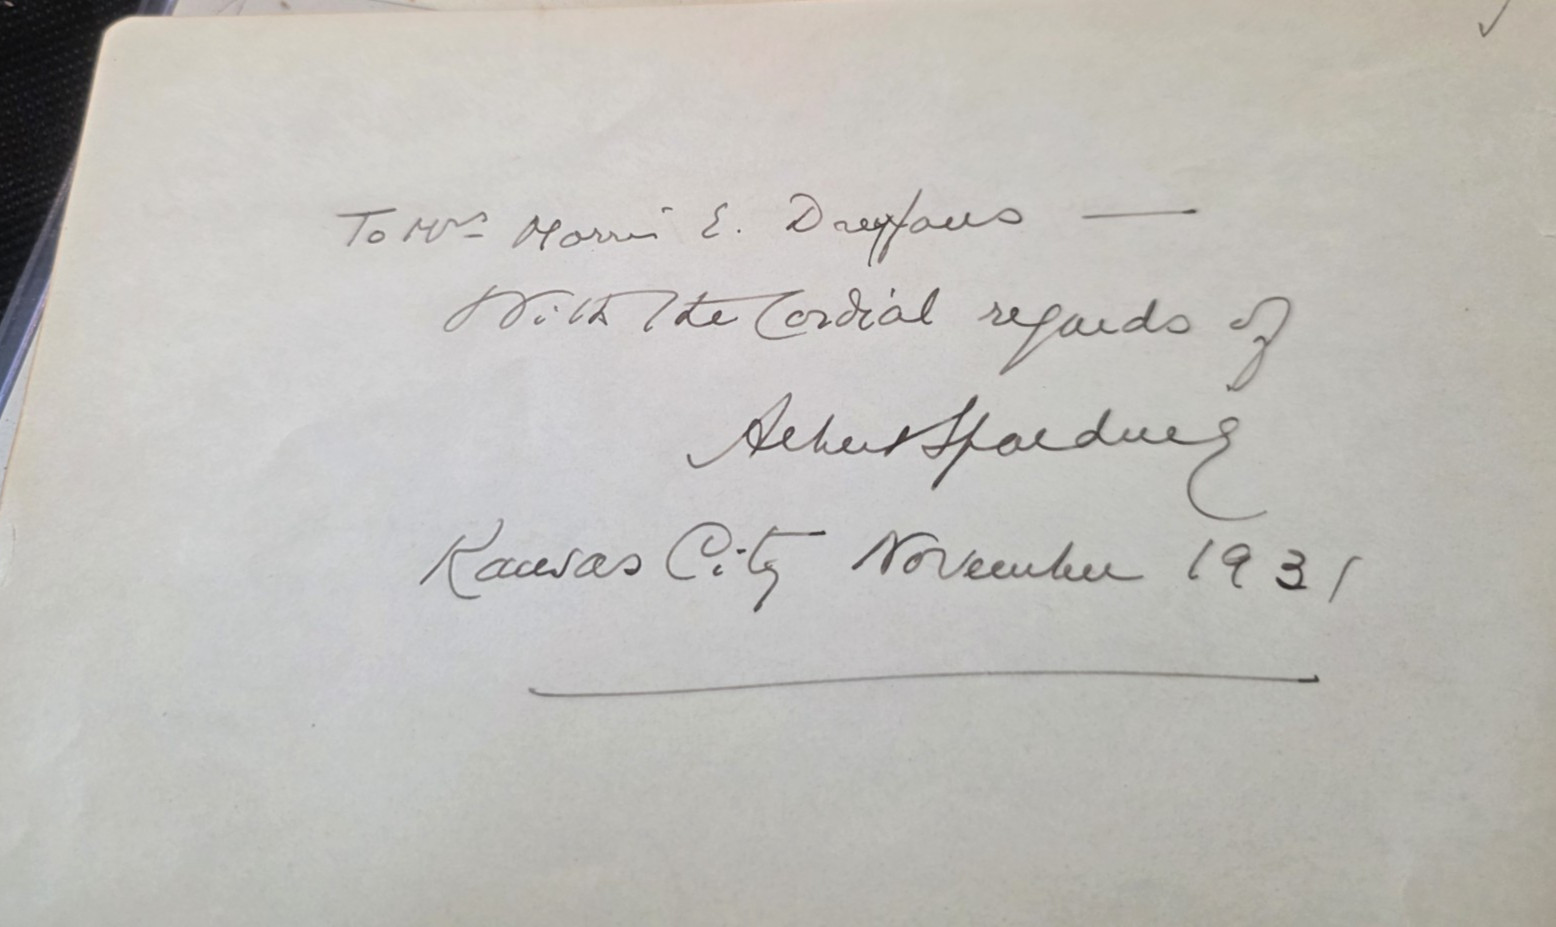 To Mrs Morris E. Dreyfous —
With the Cordial regards of
Albert Spalding
Kansas City November 1931